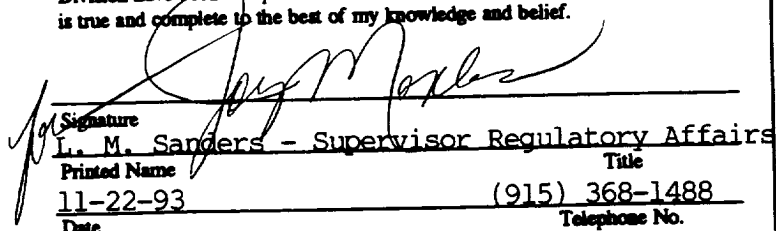 is true and complete to the best of my knowledge and belief.
for
Signature
L. M. Sanders - Supervisor Regulatory Affairs
Printed Name Title
11-22-93 (915) 368-1488
Date Telephone No.